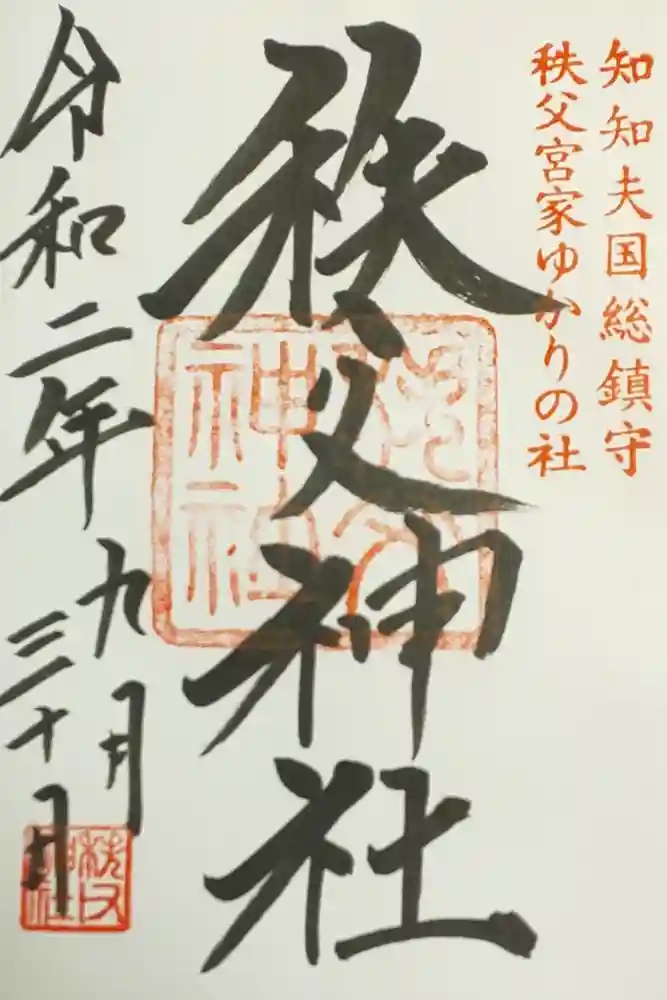 知知夫国総鎮守
秩父宮家ゆかりの社
秩父神社
秩父神社
令和二年
九月
三十日
秩父神社